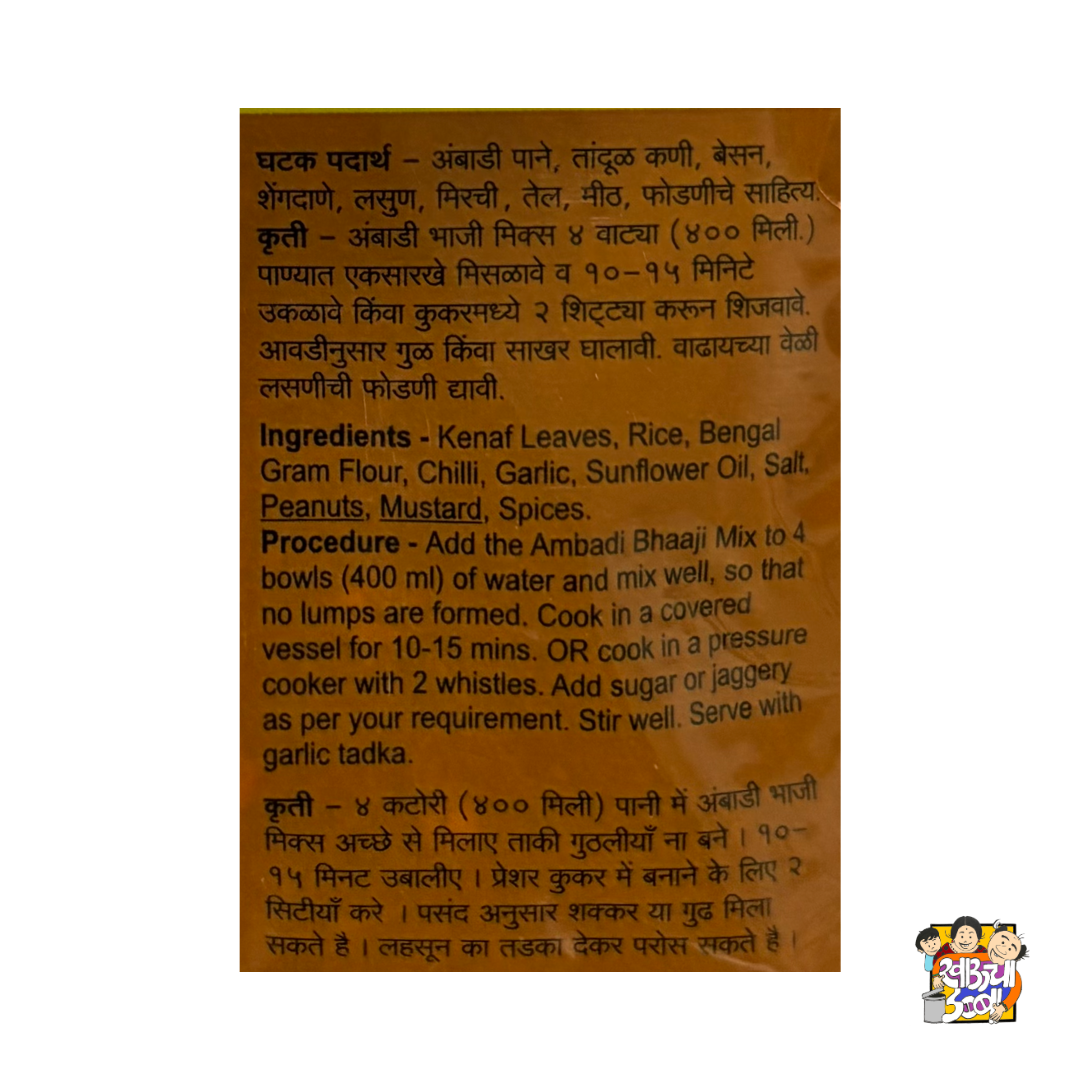 घटक पदार्थ – अंबाडी पाने, तांदूळ कणी, बेसन,
शेंगदाणे, लसुण, मिरची, तेल, मीठ, फोडणीचे साहित्य.
कृती – अंबाडी भाजी मिक्स ४ वाट्या (४०० मिली.)
पाण्यात एकसारखे मिसळावे व १०–१५ मिनिटे
उकळावे किंवा कुकरमध्ये २ शिट्ट्या करून शिजवावे.
आवडीनुसार गुळ किंवा साखर घालावी. वाढायच्या वेळी
लसणीची फोडणी द्यावी.
Ingredients - Kenaf Leaves, Rice, Bengal
Gram Flour, Chilli, Garlic, Sunflower Oil, Salt,
Peanuts, Mustard, Spices.
Procedure - Add the Ambadi Bhaaji Mix to 4
bowls (400 ml) of water and mix well, so that
no lumps are formed. Cook in a covered
vessel for 10-15 mins. OR cook in a pressure
cooker with 2 whistles. Add sugar or jaggery
as per your requirement. Stir well. Serve with
garlic tadka.
कृती – ४ कटोरी (४०० मिली) पानी में अंबाडी भाजी
मिक्स अच्छे से मिलाए ताकी गुठलीयाँ ना बने । १०–
१५ मिनट उबालीए । प्रेशर कुकर में बनाने के लिए २
सिटीयाँ करे । पसंद अनुसार शक्कर या गुढ मिला
सकते है । लहसून का तडका देकर परोस सकते है ।
खाऊचा
डब्बा